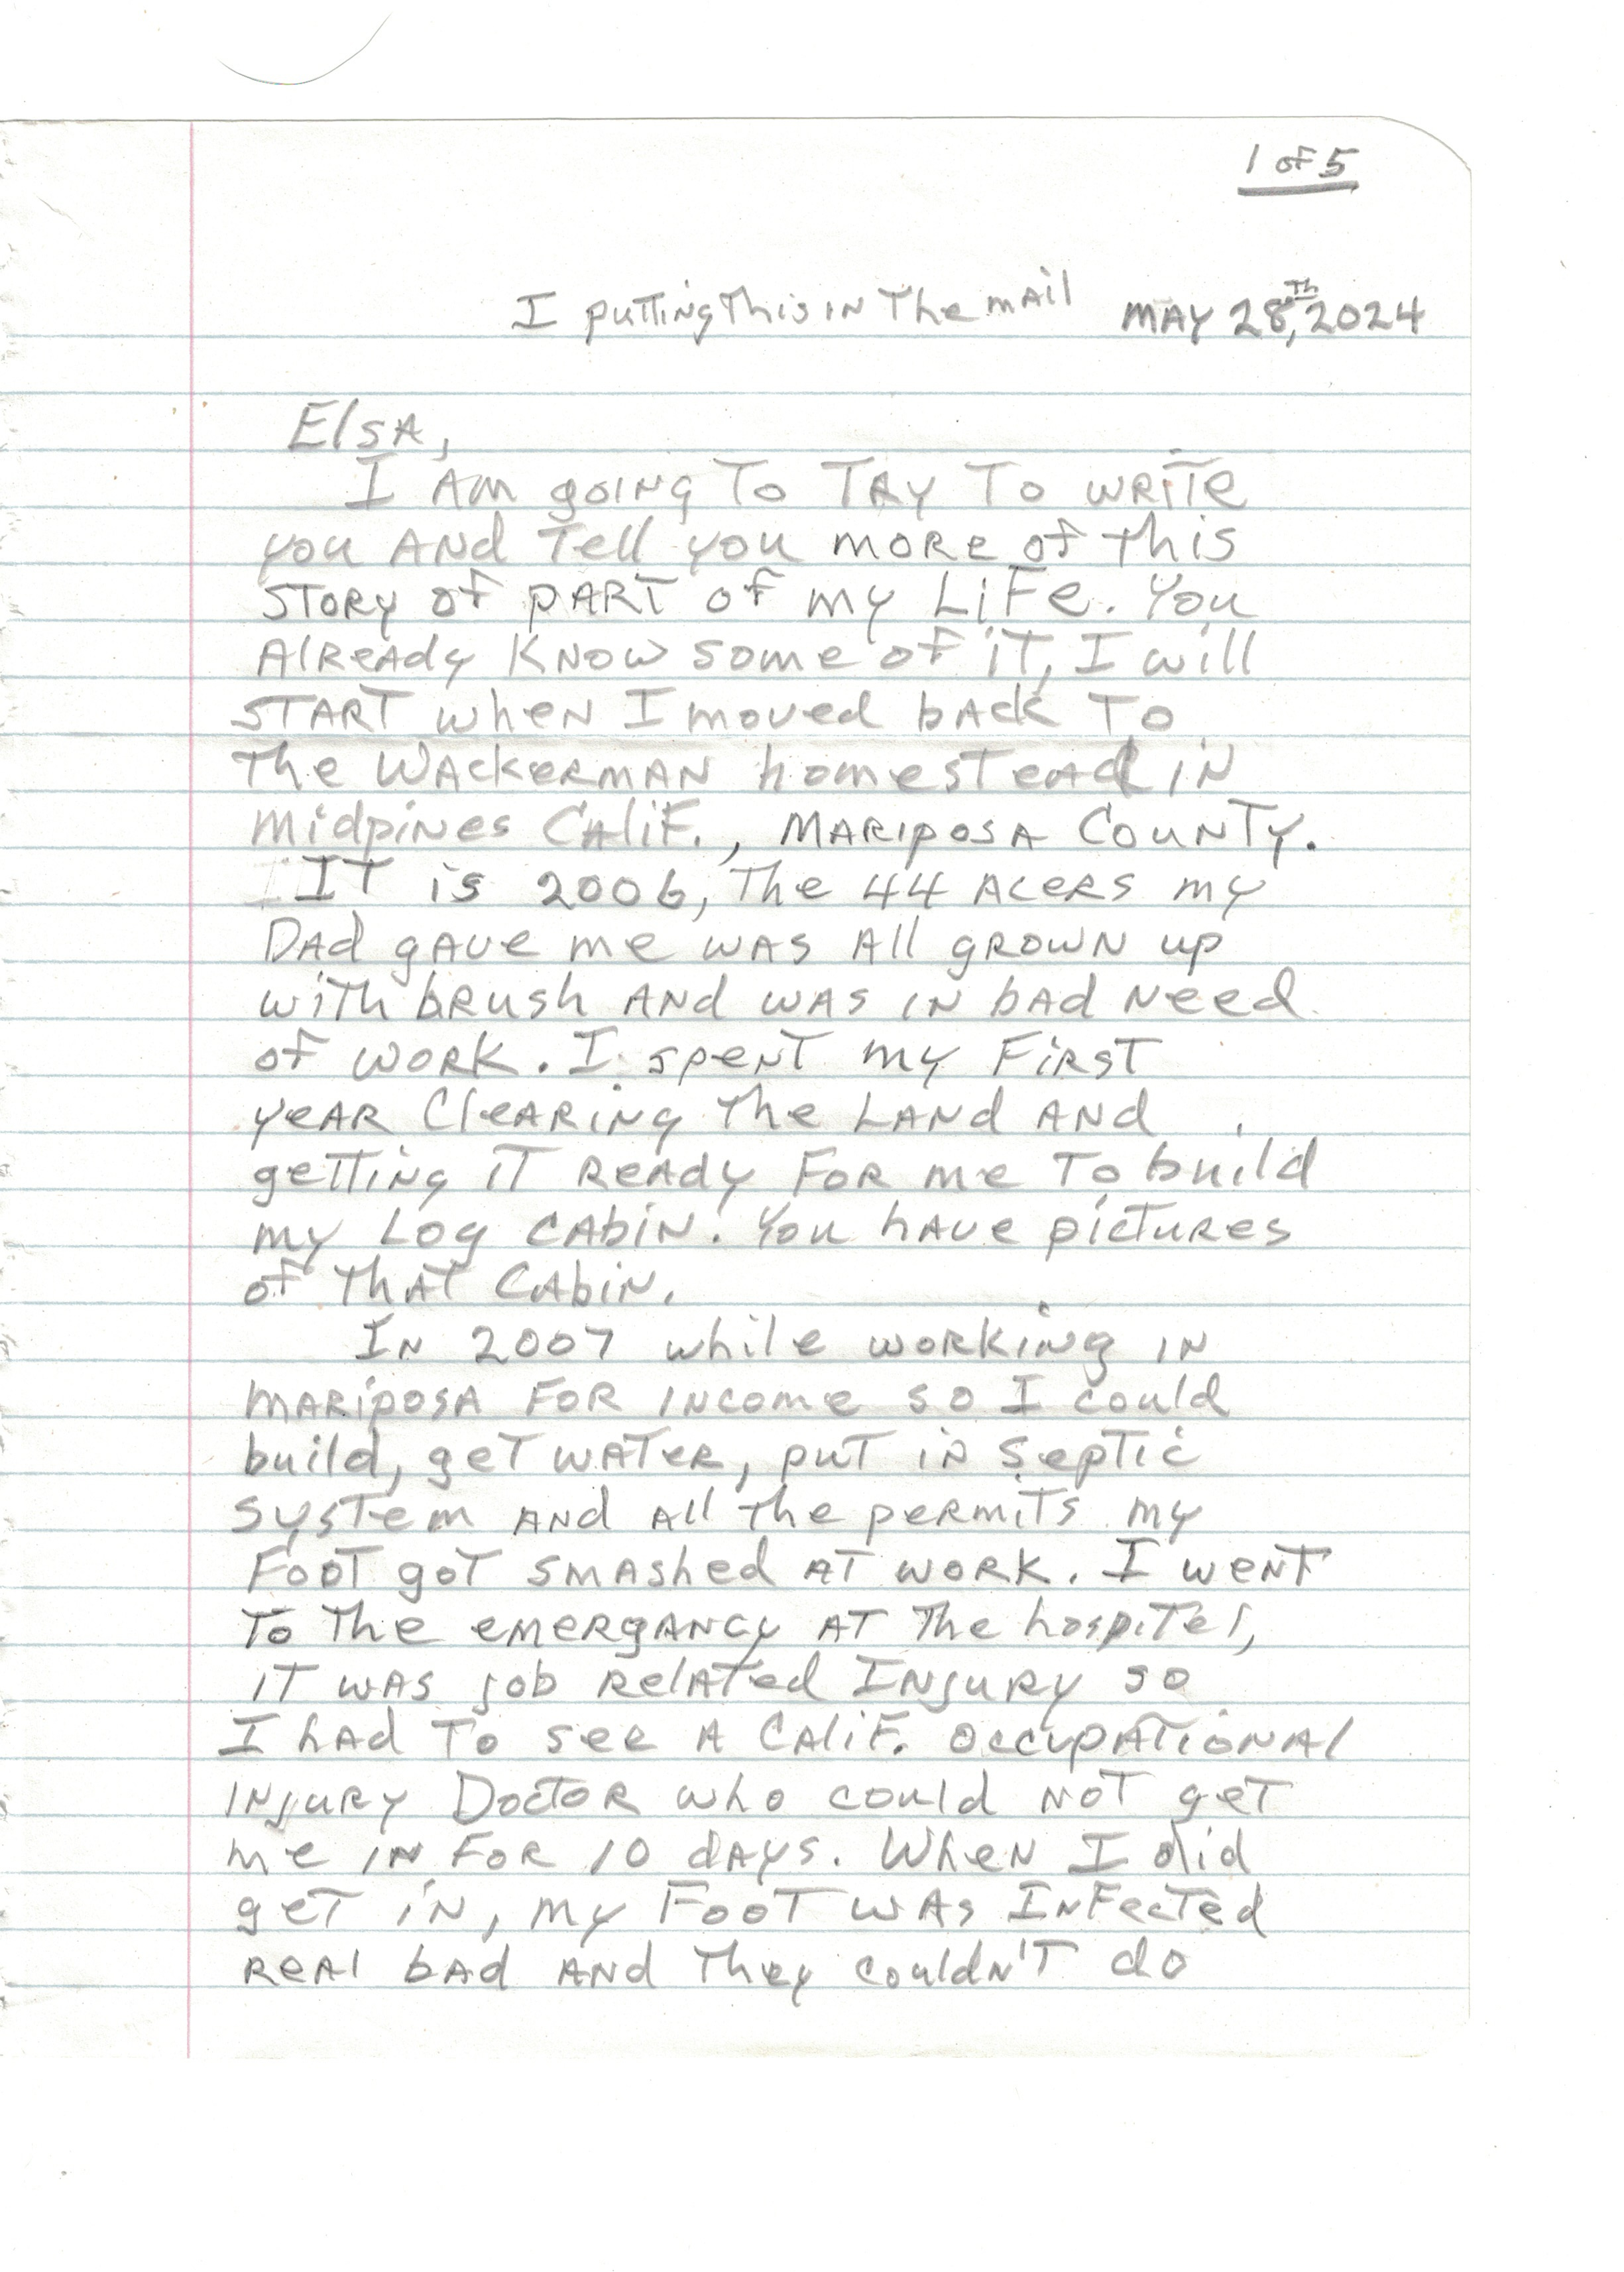 1 of 5
I putting This in The mail MAY 28,Th 2024
Elsa,
I am going To Try To write
you and Tell you more of this
story of part of my Life. You
Already know some of iT, I will
START when I moved back To
The Wackerman homestead in
Midpines Calif., Mariposa County.
IT is 2006, The 44 acers my
Dad gave me was all grown up
with brush and was in bad need
of work. I spent my First
year Clearing The Land and
getting iT ready For me To build
my Log Cabin. You have pictures
of ThaT Cabin.
In 2007 while working in
Mariposa For income so I could
build, get water, put in septic
system and all the permits my
Foot got smashed at work. I went
To The emergancy at The hospitel,
iT was job related Injury so
I had To see a Calif. Occupational
injury Doctor who could not get
me in For 10 days. When I did
get in, my Foot was Infected
real bad and They couldn't do